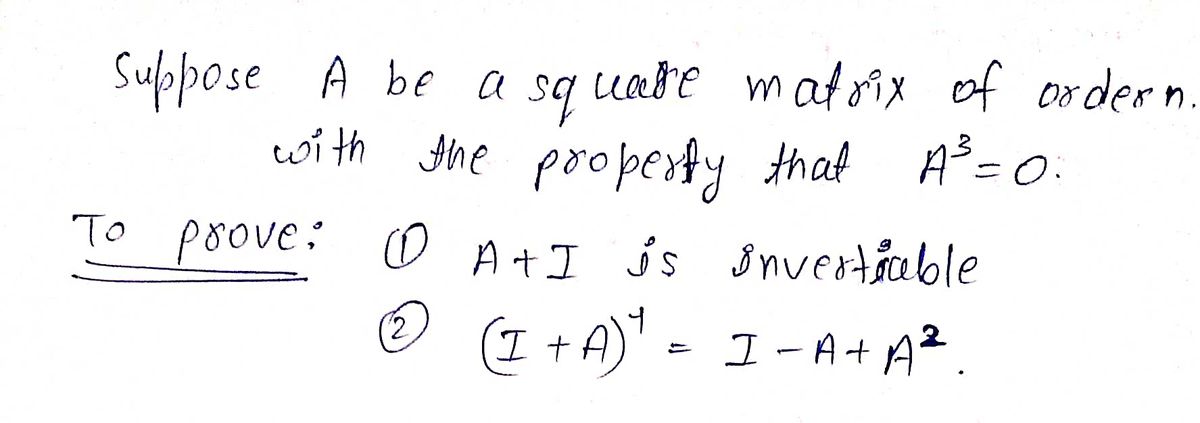 Suppose A be a square matrix of order n.
with the property that A³ = 0.
To prove: ① A + I is invertiable
② (I + A)⁻¹ = I - A + A².